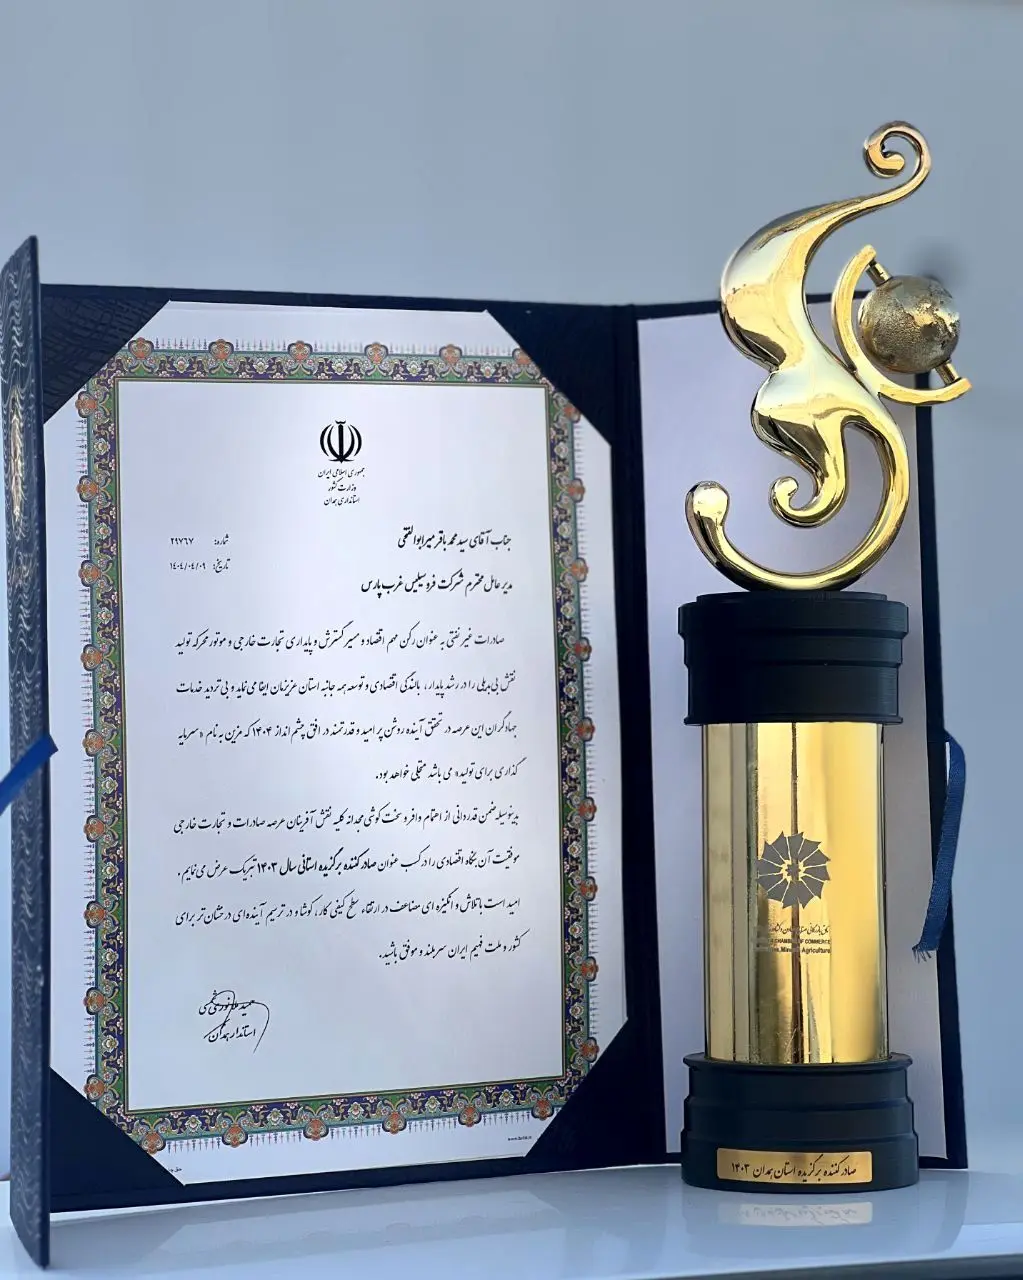 جمهوری اسلامی ایران
وزارت کشور
استانداری همدان
شماره: ۲۹۷۶۷
تاریخ: ۱۴۰۴/۰۴/۰۹
جناب آقای سید محمد باقر میرابوالفتحی
مدیر عامل محترم شرکت فروسیلیس غرب پارس
صادرات غیر نفتی به عنوان رکن مهم اقتصاد و مسیر گسترش و پایداری تجارت خارجی و موتور محرکه تولید
نقش بی بدیلی را در رشد پایدار، بالندگی اقتصادی و توسعه همه جانبه استان عزیزمان ایفا می نماید و بی تردید خدمات
جهادگران این عرصه در تحقق آینده روشن پر امید و قدرتمند در افق چشم انداز ۱۴۰۴ که مزین به نام «سرمایه
گذاری برای تولید» می باشد متجلی خواهد بود.
بدینوسیله ضمن قدردانی از اهتمام وافر و سخت کوشی مجدانه کلیه نقش آفرینان عرصه صادرات و تجارت خارجی
موفقیت آن بنگاه اقتصادی را در کسب عنوان صادر کننده برگزیده استانی سال ۱۴۰۳ تبریک عرض می نمایم.
امید است با تلاش و انگیزه ای مضاعف در ارتقاء سطح کیفی کار، کوشا و در ترسیم آینده ای درخشان تر برای
کشور و ملت فهیم ایران سربلند و موفق باشید.
حمید ملانوری شمسی
استاندار همدان
CHAMBER OF COMMERCE
Agriculture
صادر کننده برگزیده استان همدان ۱۴۰۳